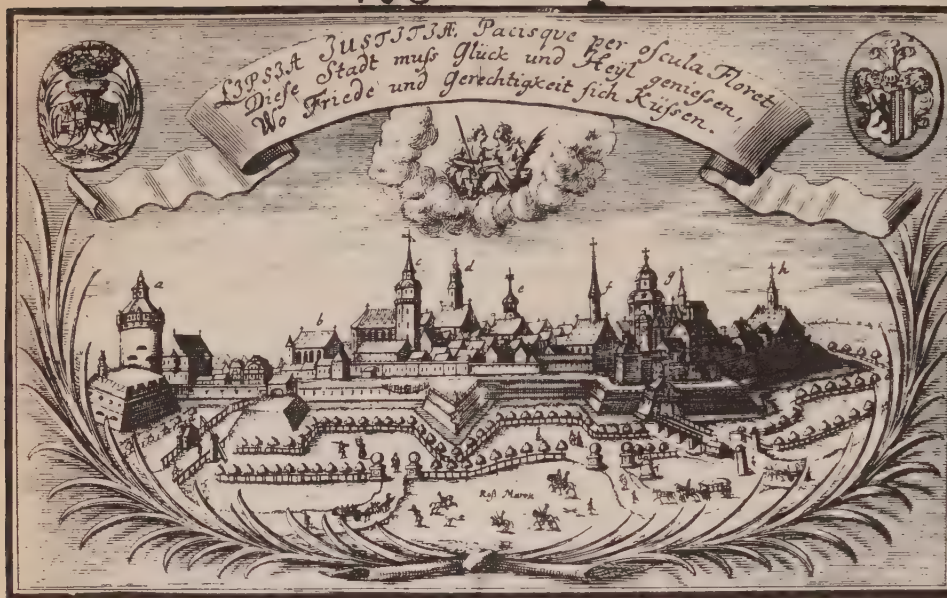 LIPSIA JUSTITIÆ, Pacisque per oſcula Floret
Diese Stadt muſs Glück und Heyl genieſsen,
Wo Friede und Gerechtigkeit ſich Küſsen.
a
b
c
d
e
f
g
h
Roß Marck